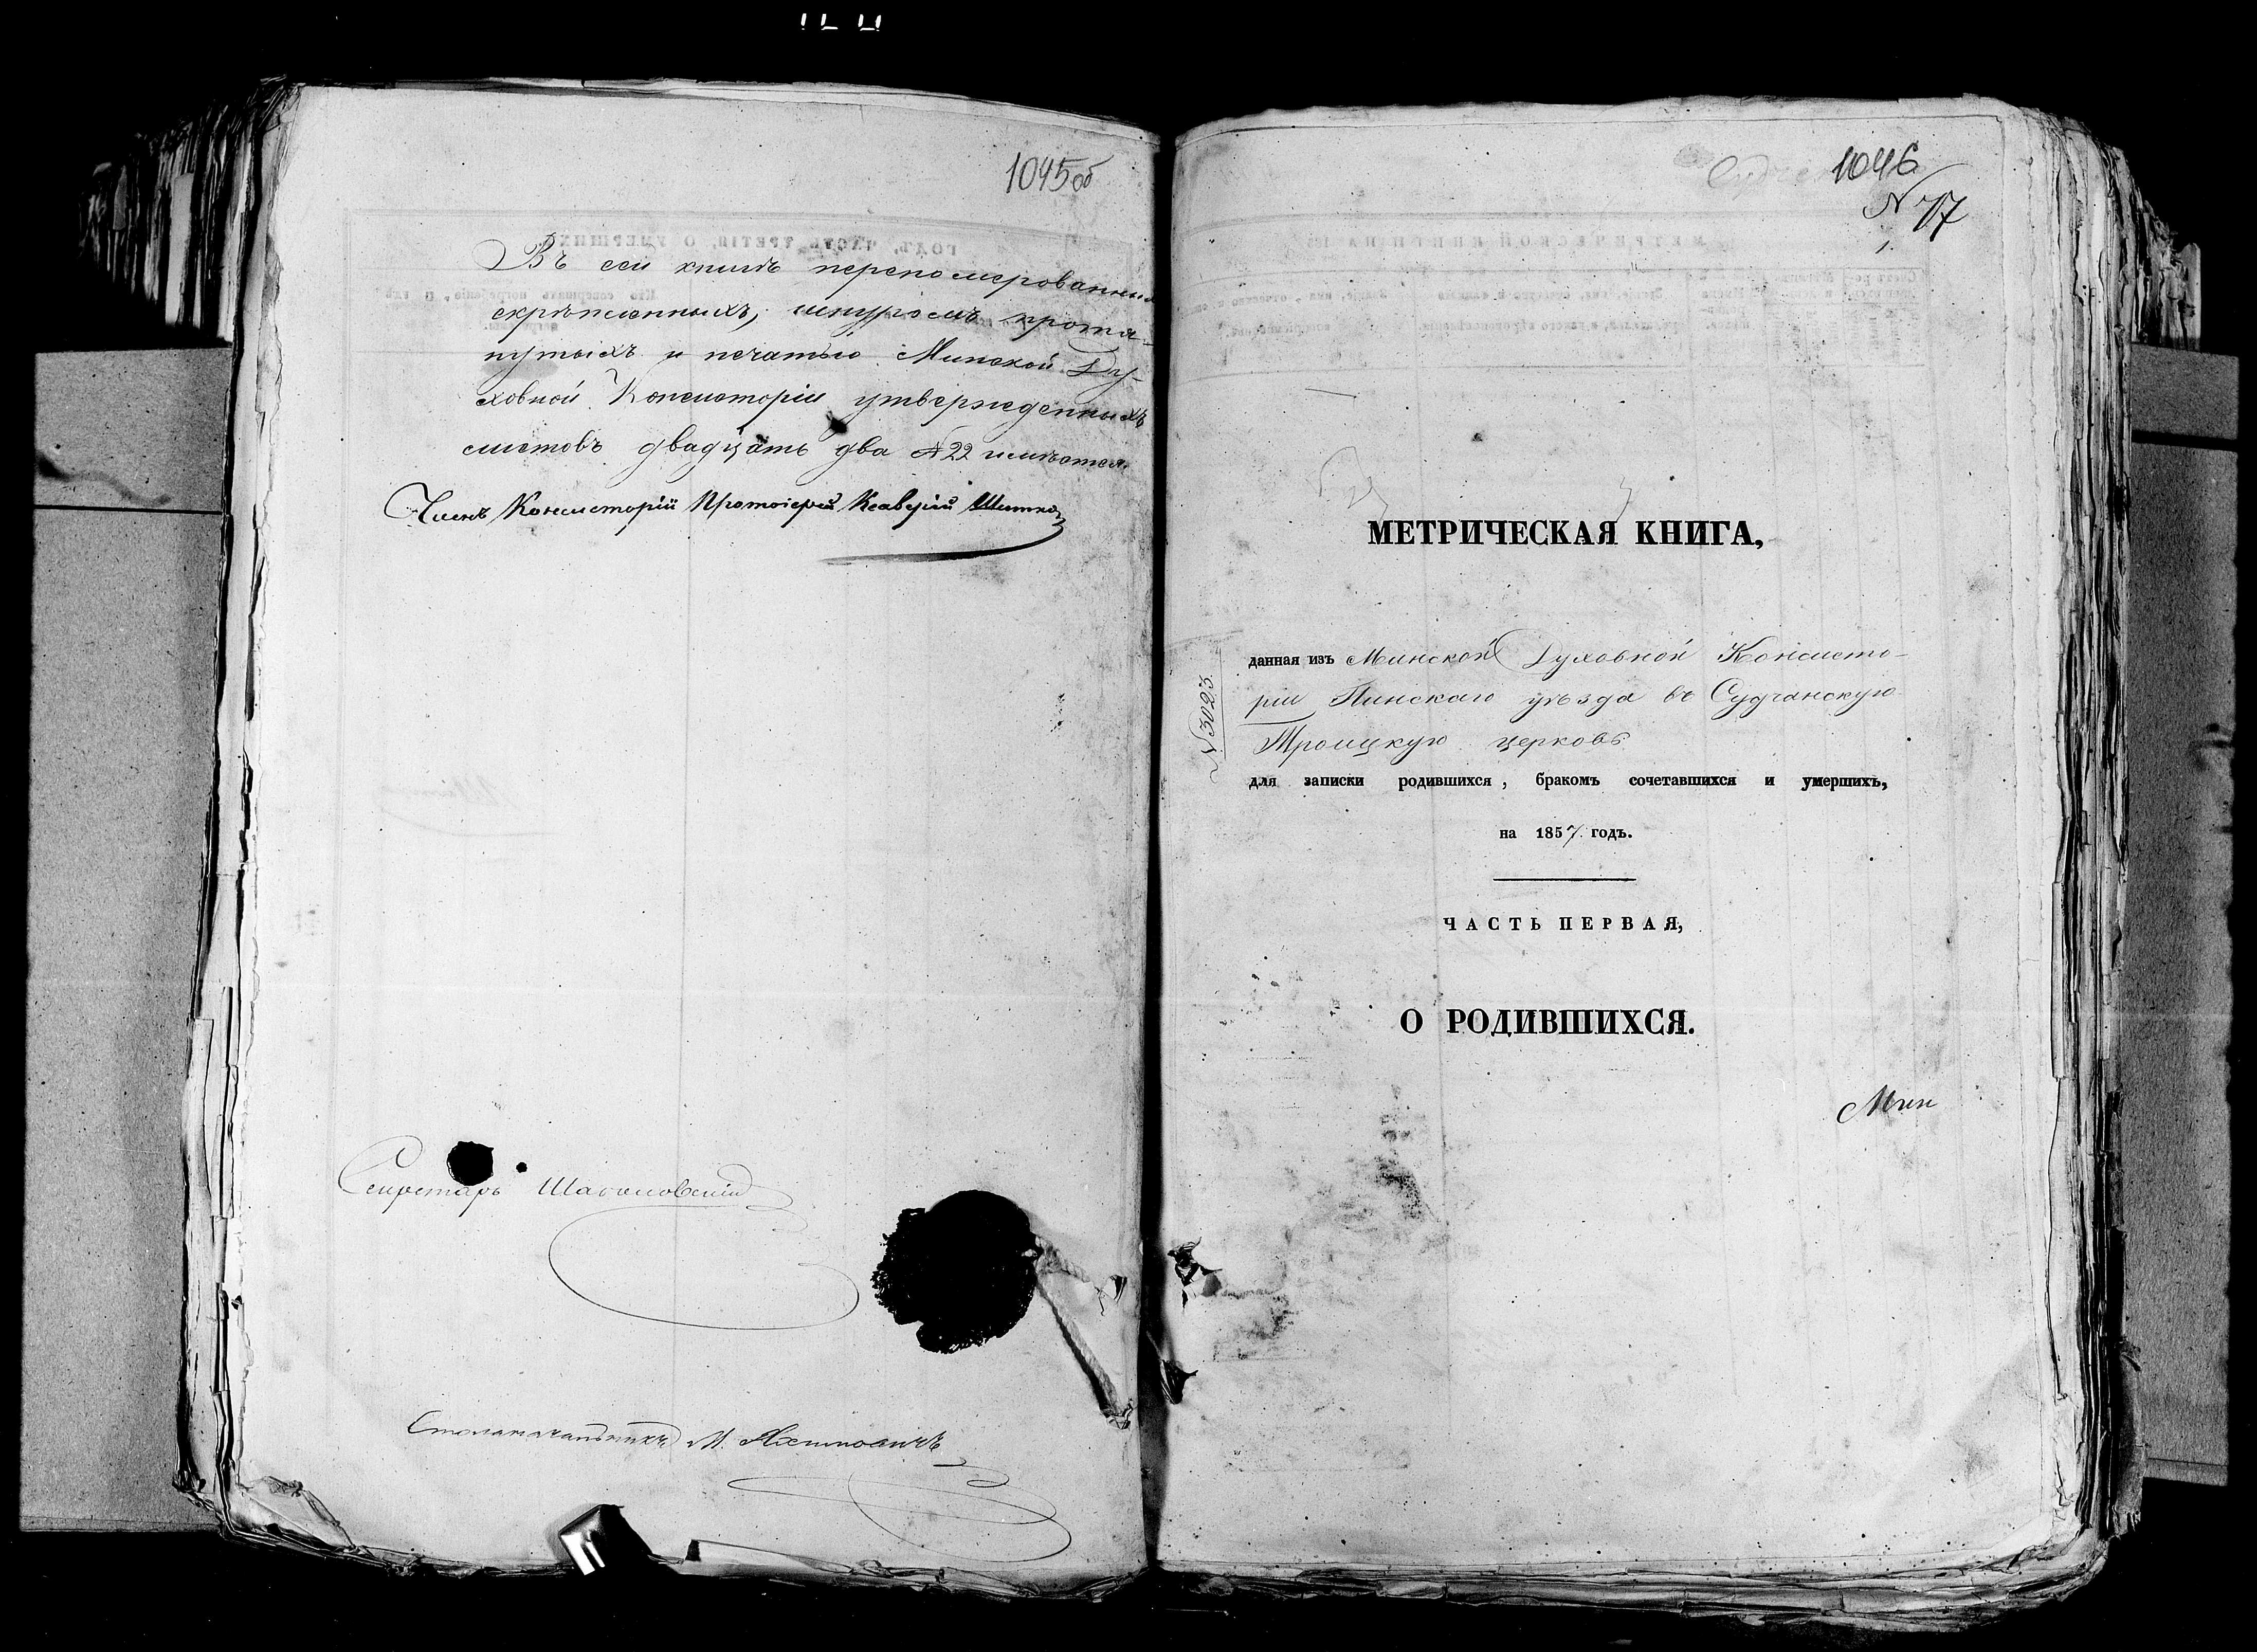 1045об
Въ сей книгѣ перенумерованныхъ
скрѣпленныхъ, шнуромъ протя-
нутыхъ и печатью Минской Ду-
ховной Консисторіи утвержденныхъ
листовъ двадцать два №22 имѣется.
Членъ Консисторіи Протоіерей Ксаверій
Секретарь
Столоначальникъ М.
1046
N 17
МЕТРИЧЕСКАЯ КНИГА,
N 3023.
данная изъ Минской Духовной Консисто-
ріи Пинскаго уѣзда въ Судчанскую
Троицкую церковь
для записки родившихся, бракомъ сочетавшихся и умершихъ,
на 1857 годъ.
ЧАСТЬ ПЕРВАЯ,
О РОДИВШИХСЯ.
Мин